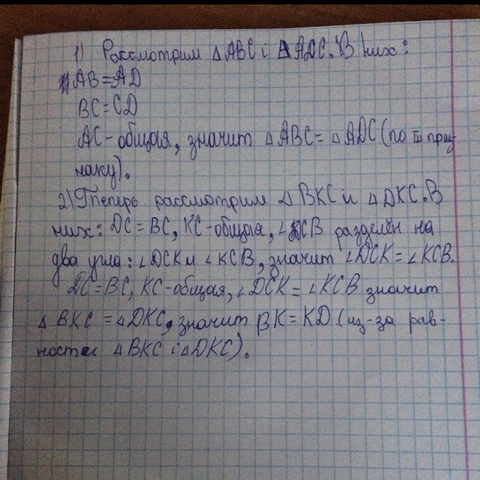 1) Рассмотрим △ABC і △ADC. В них:
AB=AD
BC=CD
AC-общая, значит △ABC=△ADC (по III приз
наку).
2) Теперь рассмотрим △BKC и △DKC. В
них: DC=BC, KC-общая, ∠DCB разделён на
два угла: ∠DCK и ∠KCB, значит ∠DCK=∠KCB.
DC=BC, KC-общая, ∠DCK=∠KCB значит
△BKC=△DKC, значит BK=KD (из-за рав-
ности △BKC і △DKC).